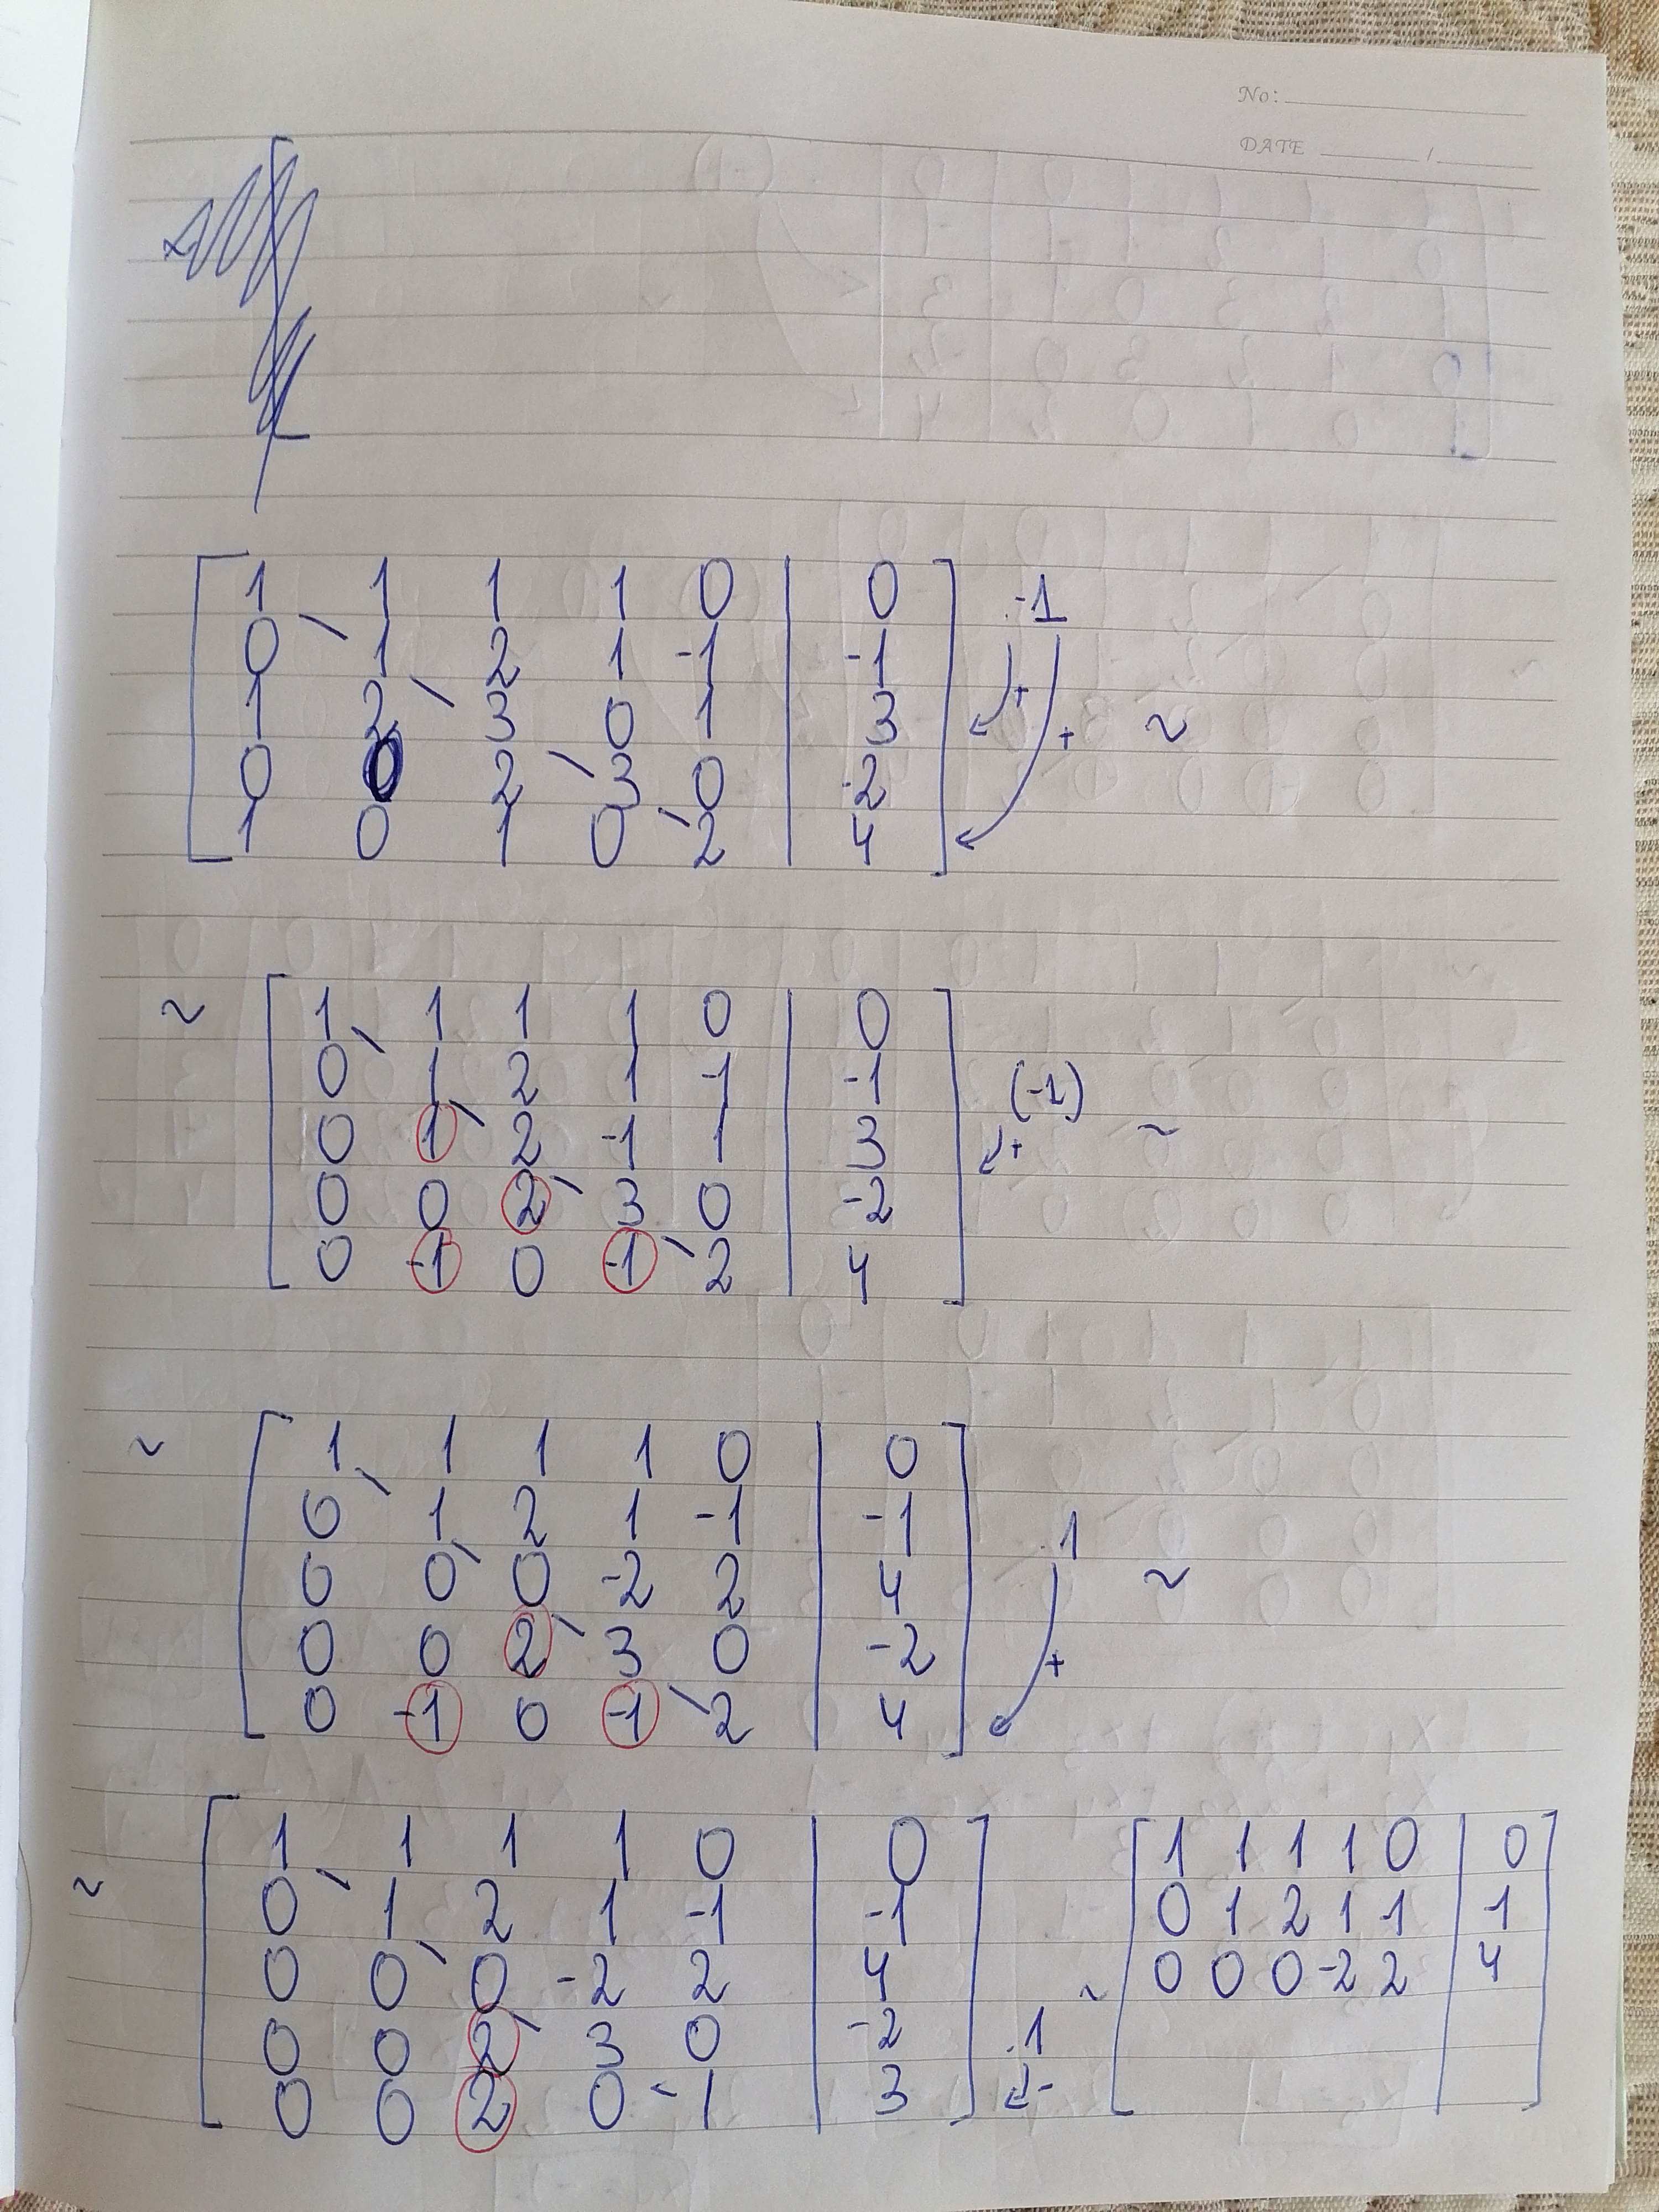 No:
DATE /
1 1 1 1 0 | 0 · -1
0 1 2 1 -1 | -1
1 2 3 0 1 | 3 + + ~
0 0 2 3 0 | -2
1 0 1 0 2 | 4
~ 1 1 1 1 0 | 0
0 1 2 1 -1 | -1 (-1)
0 1 2 -1 1 | 3 + ~
0 0 2 3 0 | -2
0 -1 0 -1 2 | 4
~ 1 1 1 1 0 | 0
0 1 2 1 -1 | -1 ·1
0 0 0 -2 2 | 4 ~
0 0 2 3 0 | -2 +
0 -1 0 -1 2 | 4
~ 1 1 1 1 0 | 0
0 1 2 1 -1 | -1
0 0 0 -2 2 | 4
0 0 2 3 0 | -2 ·1
0 0 2 0 1 | 3 -
~ 1 1 1 1 0 | 0
0 1 2 1 -1 | -1
0 0 0 -2 2 | 4